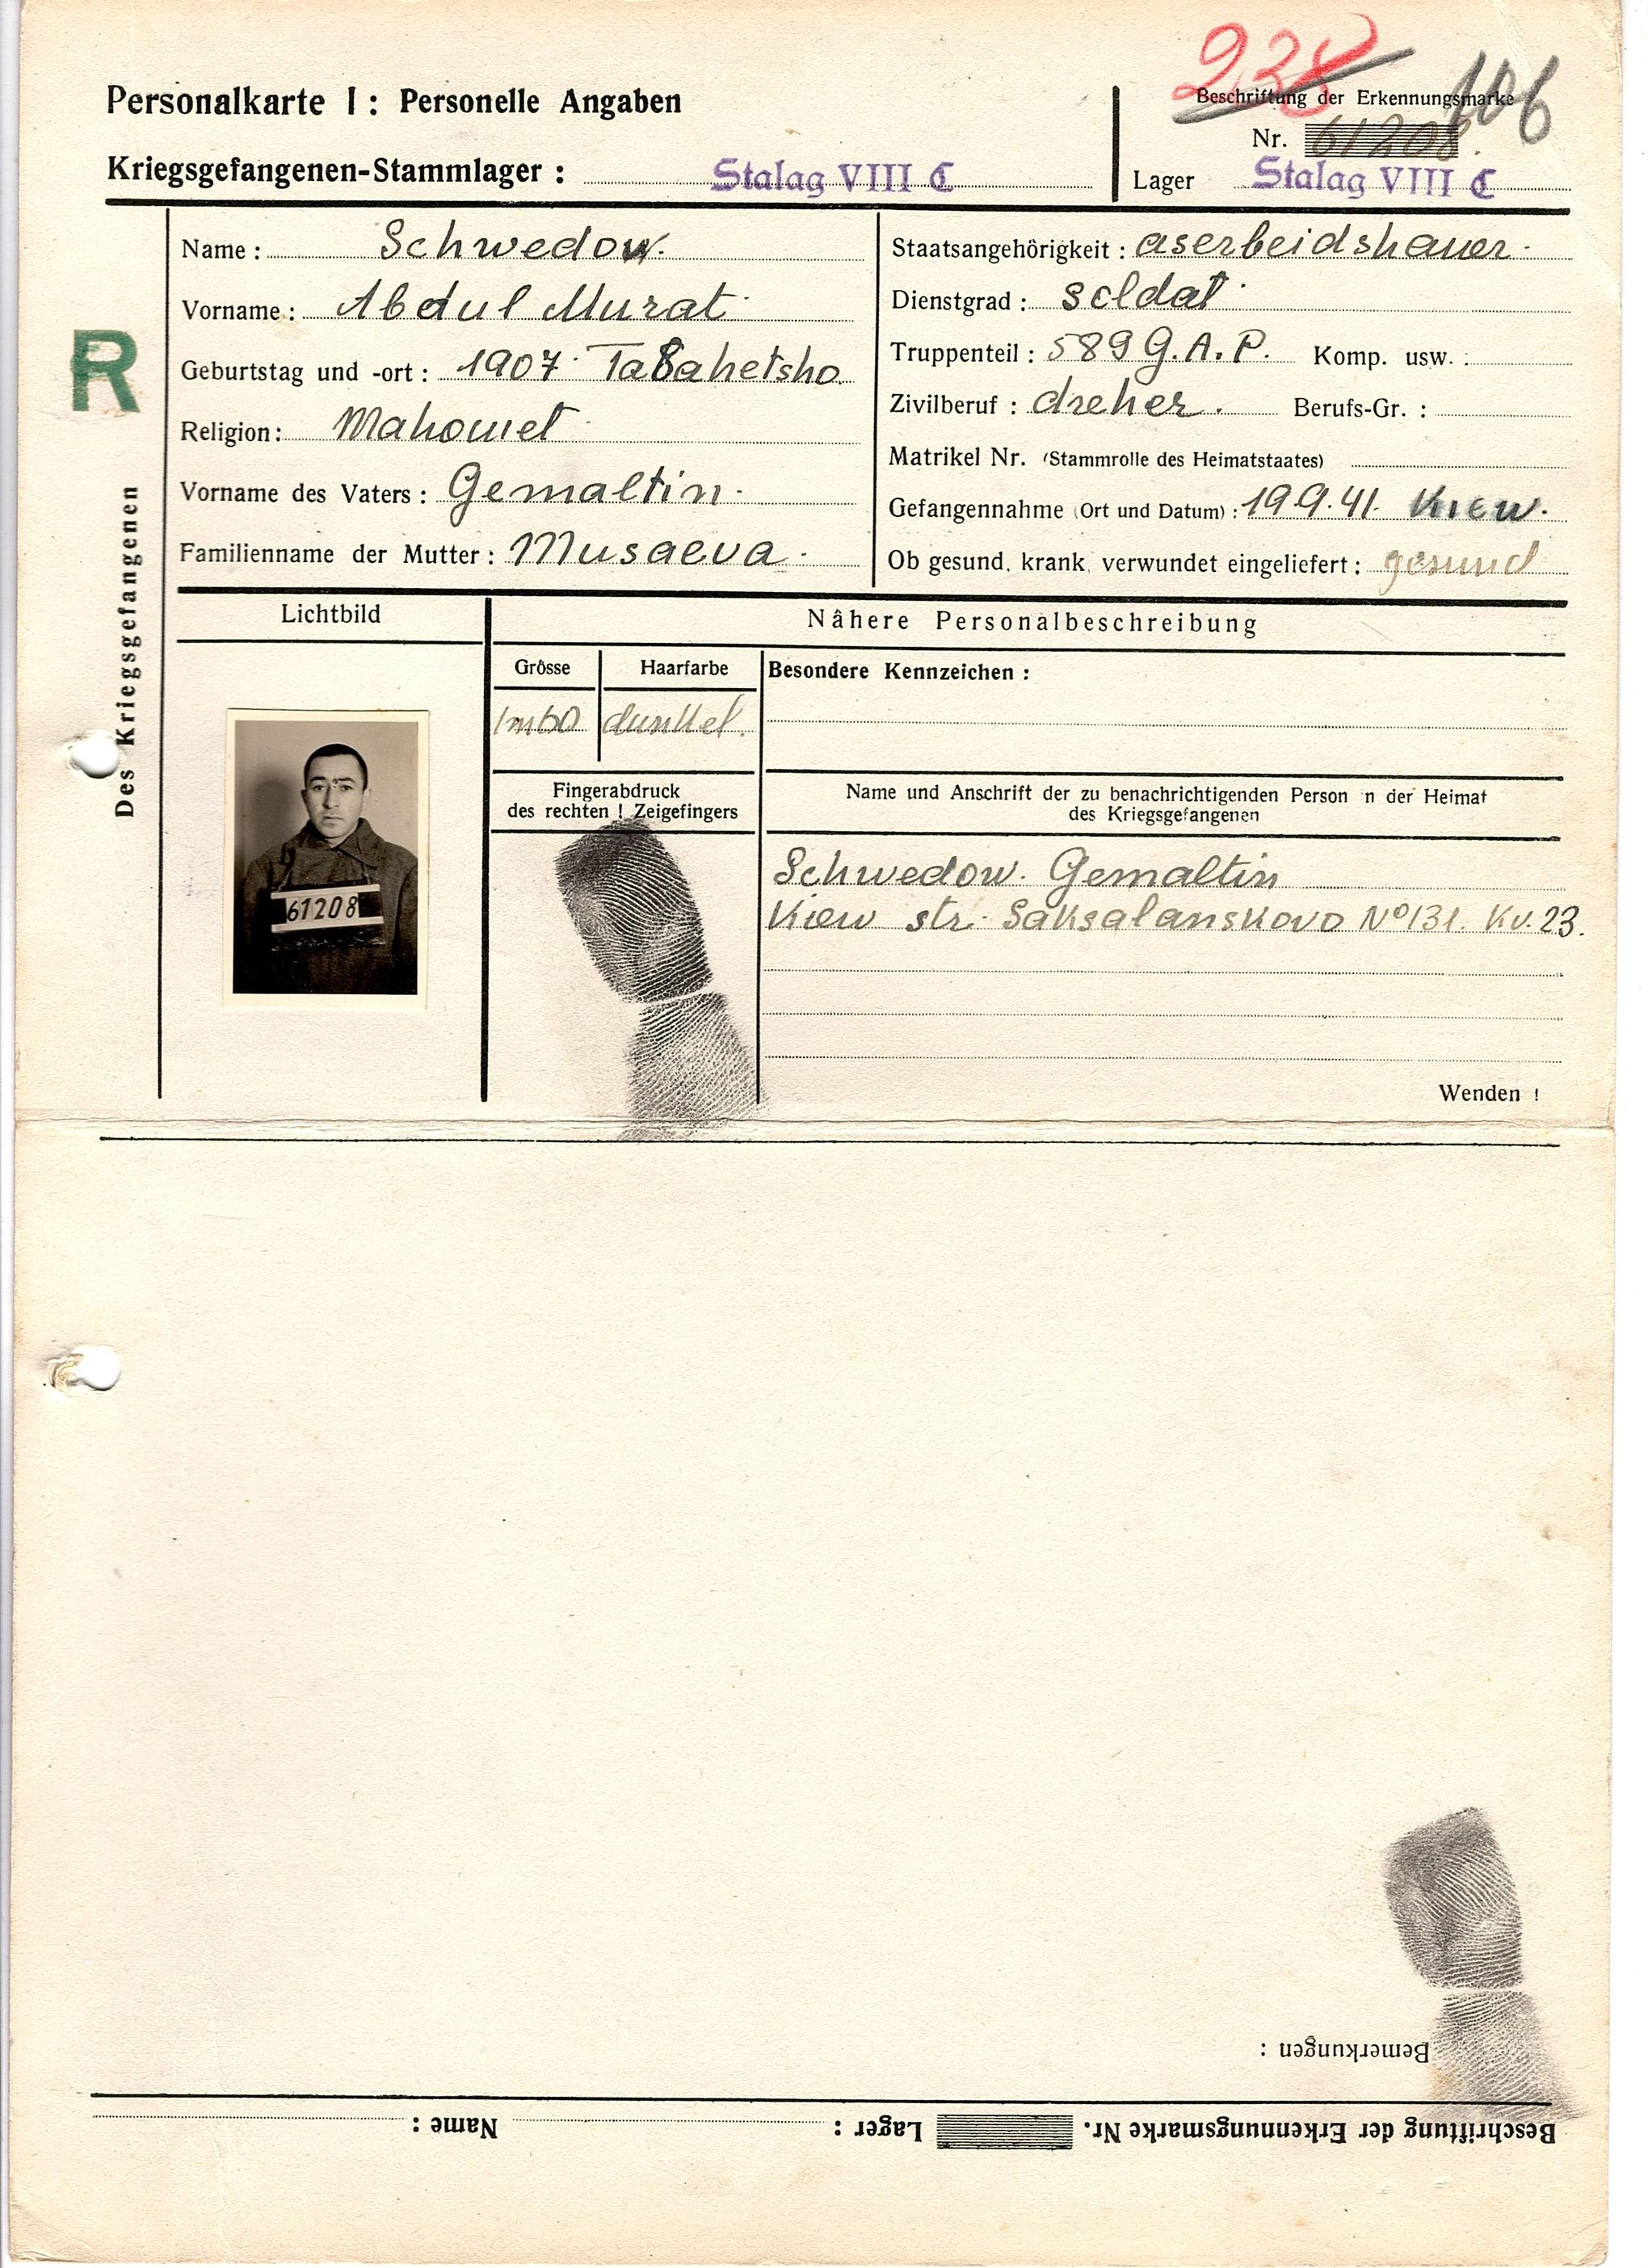 238 106
Personalkarte I: Personelle Angaben
Beschriftung der Erkennungsmarke
Nr. 61208.
Kriegsgefangenen-Stammlager: Stalag VIII C
Lager Stalag VIII C
R
Des Kriegsgefangenen
Name: Schwedow.
Vorname: Abdul Murat
Geburtstag und -ort: 1907
Religion: Mahomet
Vorname des Vaters: Gemaltin
Familienname der Mutter: Musaeva
Staatsangehörigkeit: aserbeidshaner
Dienstgrad: soldat
Truppenteil: 589 G.A.P. Komp. usw.:
Zivilberuf: dreher. Berufs-Gr.:
Matrikel Nr. (Stammrolle des Heimatstaates)
Gefangennahme (Ort und Datum): 19.9.41. Kiew.
Ob gesund, krank, verwundet eingeliefert: gesund
Lichtbild
Nähere Personalbeschreibung
Grösse
Haarfarbe
Besondere Kennzeichen:
1m60
dunkel.
61208
Fingerabdruck
des rechten! Zeigefingers
Name und Anschrift der zu benachrichtigenden Person n der Heimat
des Kriegsgefangenen
Schwedow. Gemaltin
Kiew str. Saksalanskovo No 131. Kv. 23.
Wenden!
Bemerkungen:
Beschriftung der Erkennungsmarke Nr. Lager: Name: